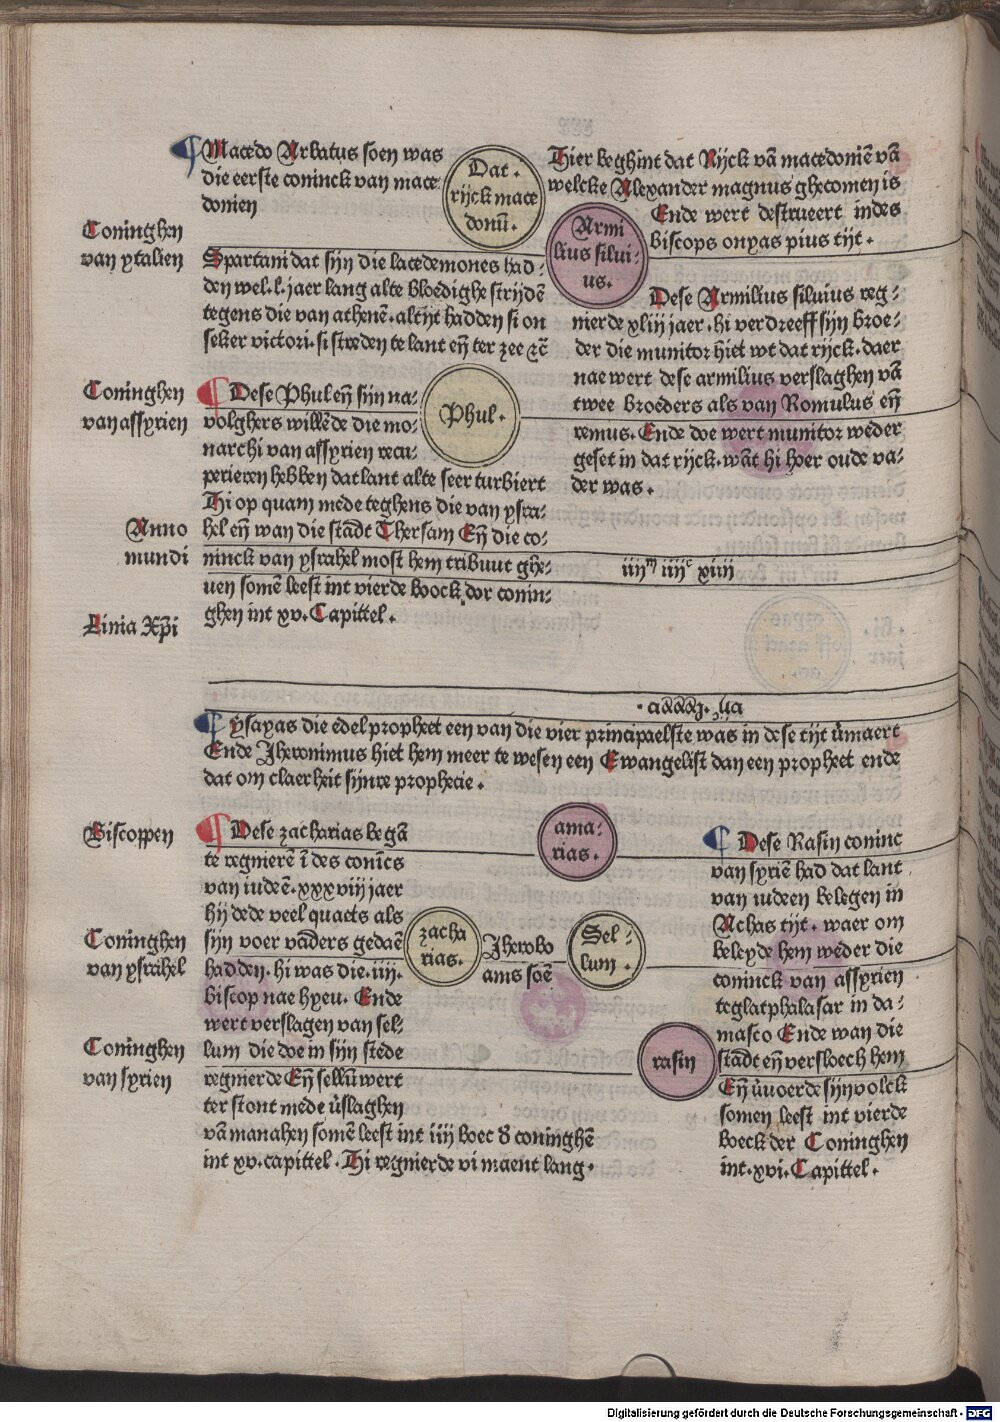 Macedo Arbatus soen was
die eerste coninck van mace
donien
Dat
rijck mace
donū.
Hier beghint dat Rijck vā macedoniē vā
welcke Alexander magnus ghecomen is
Ende wert destrueert indes
biscops onyas pius tijt.
Coninghen
van ytalien
Armi
lius silui-
us.
Spartani dat sijn die lacedemones had-
den wel.l. jaer lang alte bloedighe strijdē
tegens die van athenē. altijt hadden si on
seker victori. si streden te lant eñ ter zee ꝛc̄
Dese Armilius siluius reg-
nierde xliij jaer. hi verdreeff sijn broe-
der die munitor hiet wt dat rijck. daer
nae wert dese armilius verslaghen vā
twee broeders als van Romulus eñ
remus. Ende doe wert munitor weder
geset in dat rijck. wāt hi hoer oude va-
der was.
Coninghen
van assyrien
Phul.
Dese Phul eñ sijn na-
volghers willēde die mo-
narchi van assyrien recu-
perieren hebben dat lant alte seer turbiert
Hi op quam mede teghens die van ysra-
hel eñ wan die stadt Thersam Eñ die co-
ninck van ysrahel most hem tribuut ghe-
uen somē leest int vierde boock der conin-
ghen int xv. Capittel.
Anno
mundi
iiijᵐ iiijᶜ xiiij
Linia Xp̄i
Ysayas die edel propheet een van die vier principaelste was in dese tijt v̄maert
Ende Jheronimus hiet hem meer te wesen een Ewangelist dan een propheet ende
dat om claerheit sijnre prophecie.
Biscoppen
ama-
rias.
Dese zacharias begā
te regnierē ī des conīcs
van iudeē. xxxviij jaer
hij dede veel quaets als
sijn voer vāders gedaē
hadden. hi was die. iiij.
biscop nae hyeu. Ende
wert verslagen van sel-
lum die doe in sijn stede
regnierde Eñ sellū wert
ter stont mede v̄slaghen
vā manahen somē leest int iiij boec d̄ coninghē
int xv. capittel. Hi regnierde vi maent lang.
Coninghen
van ysrahel
zacha
rias.
Jherobo
ams soē
Sel-
lum.
Coninghen
van syrien
rasin
Dese Rasin coninc
van syriē had dat lant
van iudeen belegen in
Achas tijt. waer om
beleyde hem weder die
coninck van assyrien
teglatphalasar in da-
masco Ende wan die
stadt eñ versloech hem
Eñ v̄uoerde sijn volck
somen leest int vierde
boeck der Coninghen
int. xvi. Capittel.
Digitalisierung gefördert durch die Deutsche Forschungsgemeinschaft - DFG